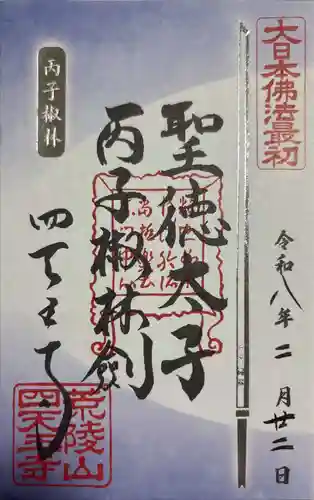 大日本佛法最初
令和八年二月廿二日
聖徳太子
丙子椒林劍
四天王寺
丙子椒林
荒陵山
四天王寺